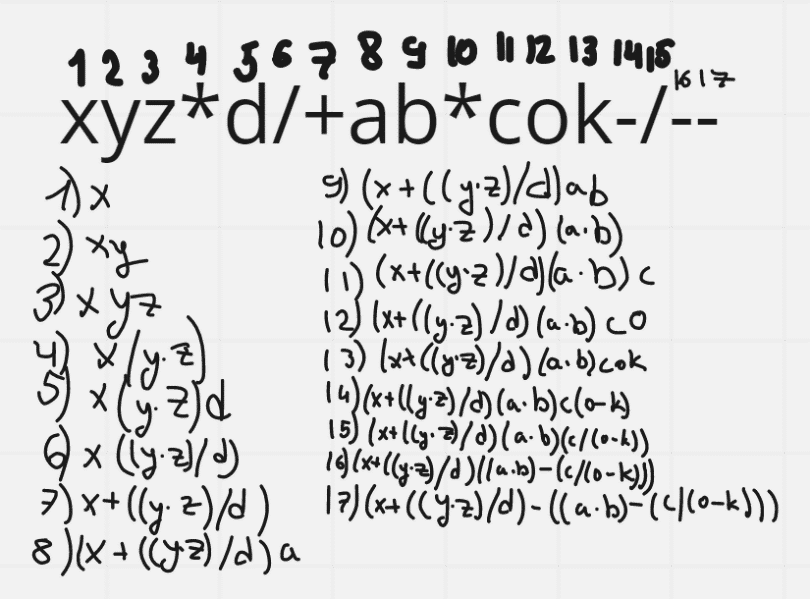 1 2 3 4 5 6 7 8 9 10 11 12 13 14 15 16 17
xyz*d/+ab*cok-/--
1) x
2) xy
3) xyz
4) x(y·z)
5) x(y·z)d
6) x((y·z)/d)
7) x+((y·z)/d)
8) (x+((y·z)/d)a
9) (x+((y·z)/d)ab
10) (x+((y·z)/d)(a·b)
11) (x+((y·z)/d)(a·b)c
12) (x+((y·z)/d)(a·b)co
13) (x+((y·z)/d)(a·b)cok
14) (x+((y·z)/d)(a·b)c(o-k)
15) (x+((y·z)/d)(a·b)(c/(o-k))
16) (x+((y·z)/d)((a·b)-(c/(o-k)))
17) (x+((y·z)/d)-((a·b)-(c/(o-k)))